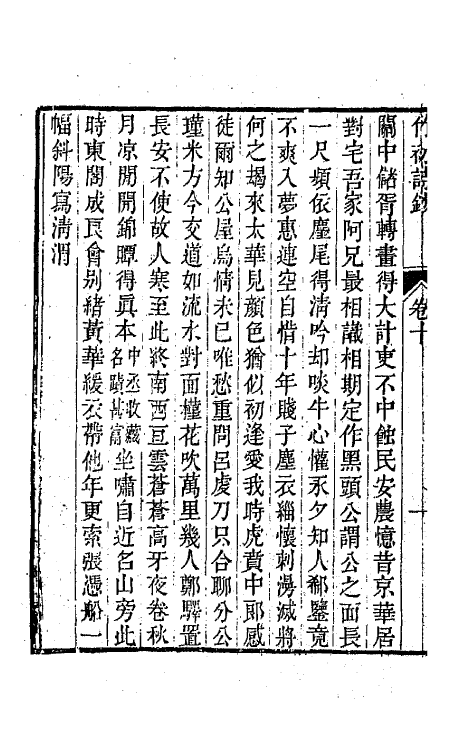 竹初詩鈔 卷十 十
關中儲胥轉畫得大計更不中蝕民安農憶昔京華居
對宅吾家阿兄最相識相期定作黑頭公謂公之面長
一尺頻依塵尾得清吟却啖牛心懽永夕知人郗鑒竟
不爽入夢惠連空自惜十年賤子塵衣緇懷刺漫滅將
何之朅來太華見顔色猶似初逢愛我時虎賁中郎感
徒爾知公屋烏情未已唯愁重問呂虔刀只合聊分公
瑾米方今交道如流水對面槿花吹萬里幾人鄭驛置
長安不使故人寒至此終南西亘雲蒼蒼高牙夜卷秋
月凉開開錦贉得眞本中丞收藏名蹟甚富坐嘯自近名山旁此
時東閣成良會别緒黃華緩云帶他年更索張憑船一
幅斜陽寫清渭